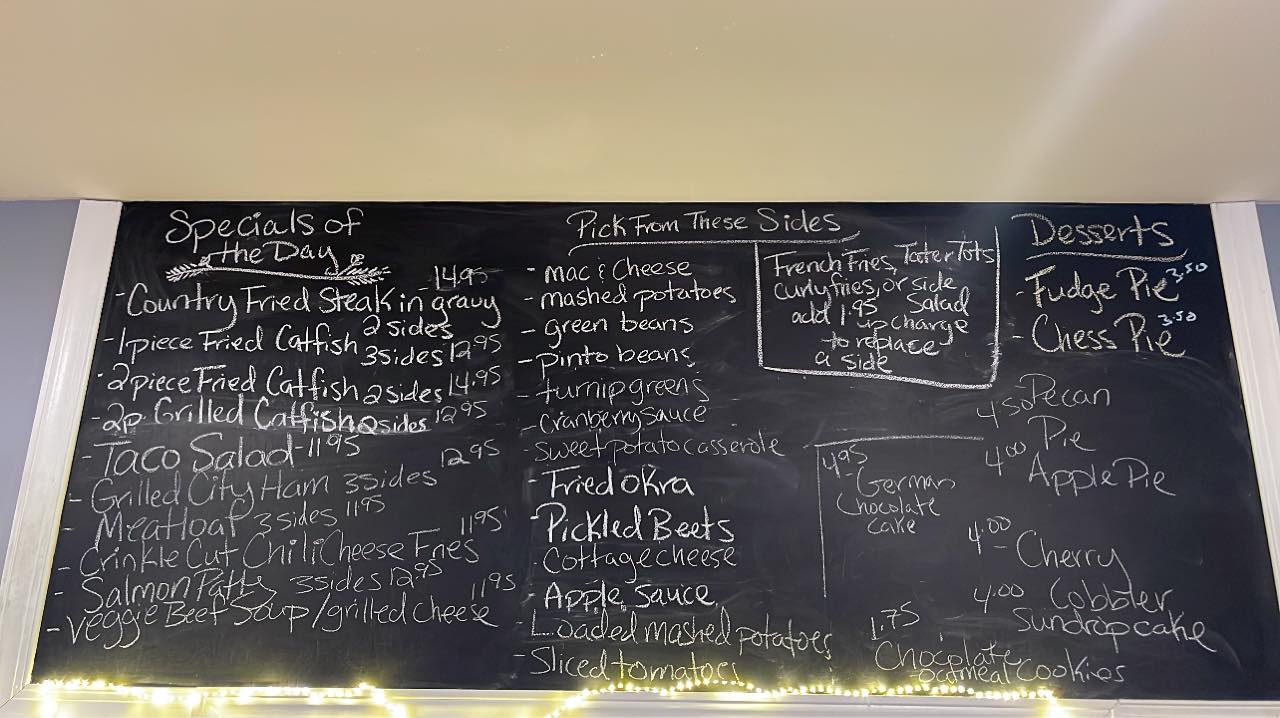 Specials of
the Day
14.95
-Country Fried Steak in gravy
2 sides
-1piece Fried Catfish 3sides 12.95
-2piece Fried Catfish 2 sides 14.95
-2p Grilled Catfish 2sides 12.95
-Taco Salad-11.95
-Grilled City Ham 3sides 12.95
-Meatloaf 3 sides 11.95
-Crinkle Cut Chili Cheese Fries 11.95
-Salmon Patty 3sides 12.95
-Veggie Beef Soup/grilled cheese 11.95
Pick From These Sides
-mac & Cheese
-mashed potatoes
-green beans
-pinto beans
-turnip greens
-Cranberry sauce
-sweet potato casserole
-Fried okra
-Pickled Beets
-Cottage cheese
-Apple Sauce
-Loaded mashed potatoes
-Sliced tomatoes
French Fries, Tater Tots
curly fries, or side
add 1.95 Salad
upcharge
to replace
a side
4.95
-German
Chocolate
cake
Desserts
-Fudge Pie 3.50
-Chess Pie 3.50
4.50 Pecan
Pie
4.00 Apple Pie
4.00 -Cherry
Cobbler
4.00 Sundrop cake
1.75
Chocolate
oatmeal cookies